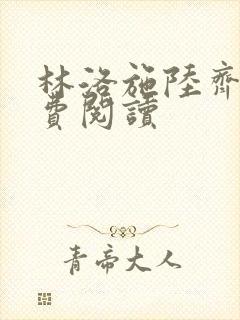 林洛施陸齊
費閱讀
青帝大人